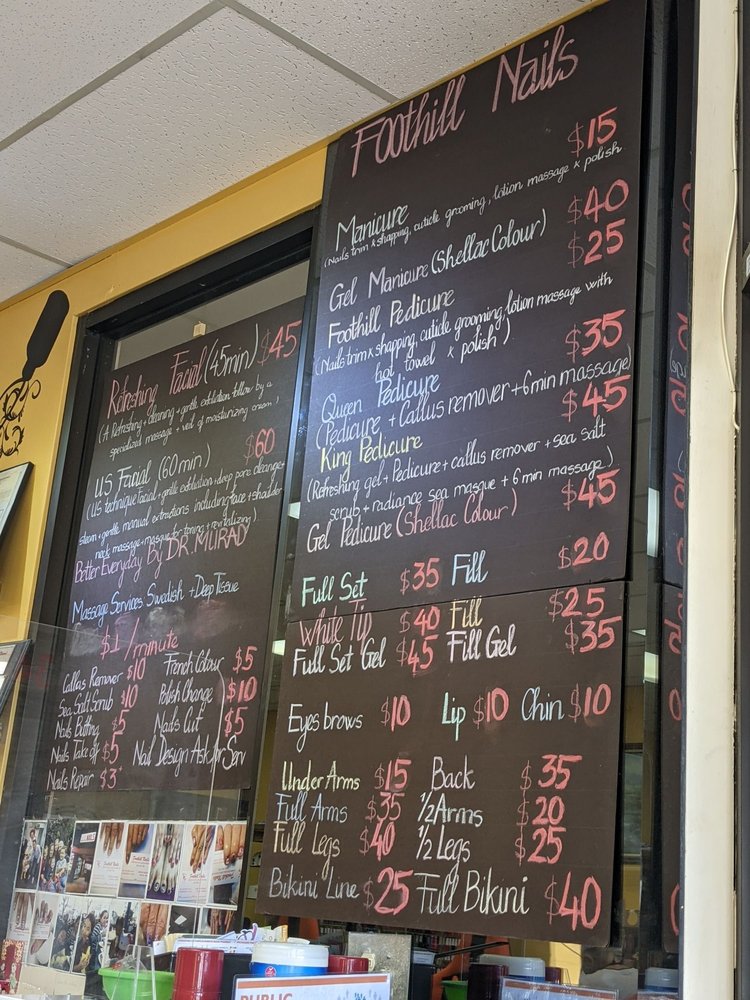 Foothill Nails
Manicure $15
(Nails trim & shapping, cuticle grooming, lotion massage & polish
Gel Manicure (Shellac Colour) $40
Foothill Pedicure $25
(Nails trim & shapping, cuticle grooming, lotion massage with
hot towel & polish)
Queen Pedicure $35
(Pedicure + Callus remover + 6 min massage)
King Pedicure $45
(Refreshing gel + Pedicure + callus remover + sea salt
scrub + radiance sea masque + 6 min massage)
Gel Pedicure (Shellac Colour) $45
Full Set $35 Fill $20
White Tip $40 Fill $25
Full Set Gel $45 Fill Gel $35
Eyes brows $10 Lip $10 Chin $10
Under Arms $15 Back $35
Full Arms $35 1/2 Arms $20
Full Legs $40 1/2 Legs $25
Bikini Line $25 Full Bikini $40
Refreshing Facial (45 min) $45
(A Refreshing + cleaning + gentle exfoliation follow by a
specialized massage + veil of moisturizing cream)
US Facial (60 min) $60
(US technique facial + gentle exfoliation + deep pore cleanige
steam + gentle manual extractions including face + shoulder
neck massage + masque for toning + revitalizing)
Better Everyday By DR. MURAD
Massage Services Swedish + Deep Tissue
$1 / minute
Callas Remover $10 French Colour $5
Sea Salt Scrub $10 Polish Change $10
Nails Buffing $5 Nails Cut $5
Nails Take off $5 Nail Design Ask for Serv
Nails Repair $3
PUBLIC